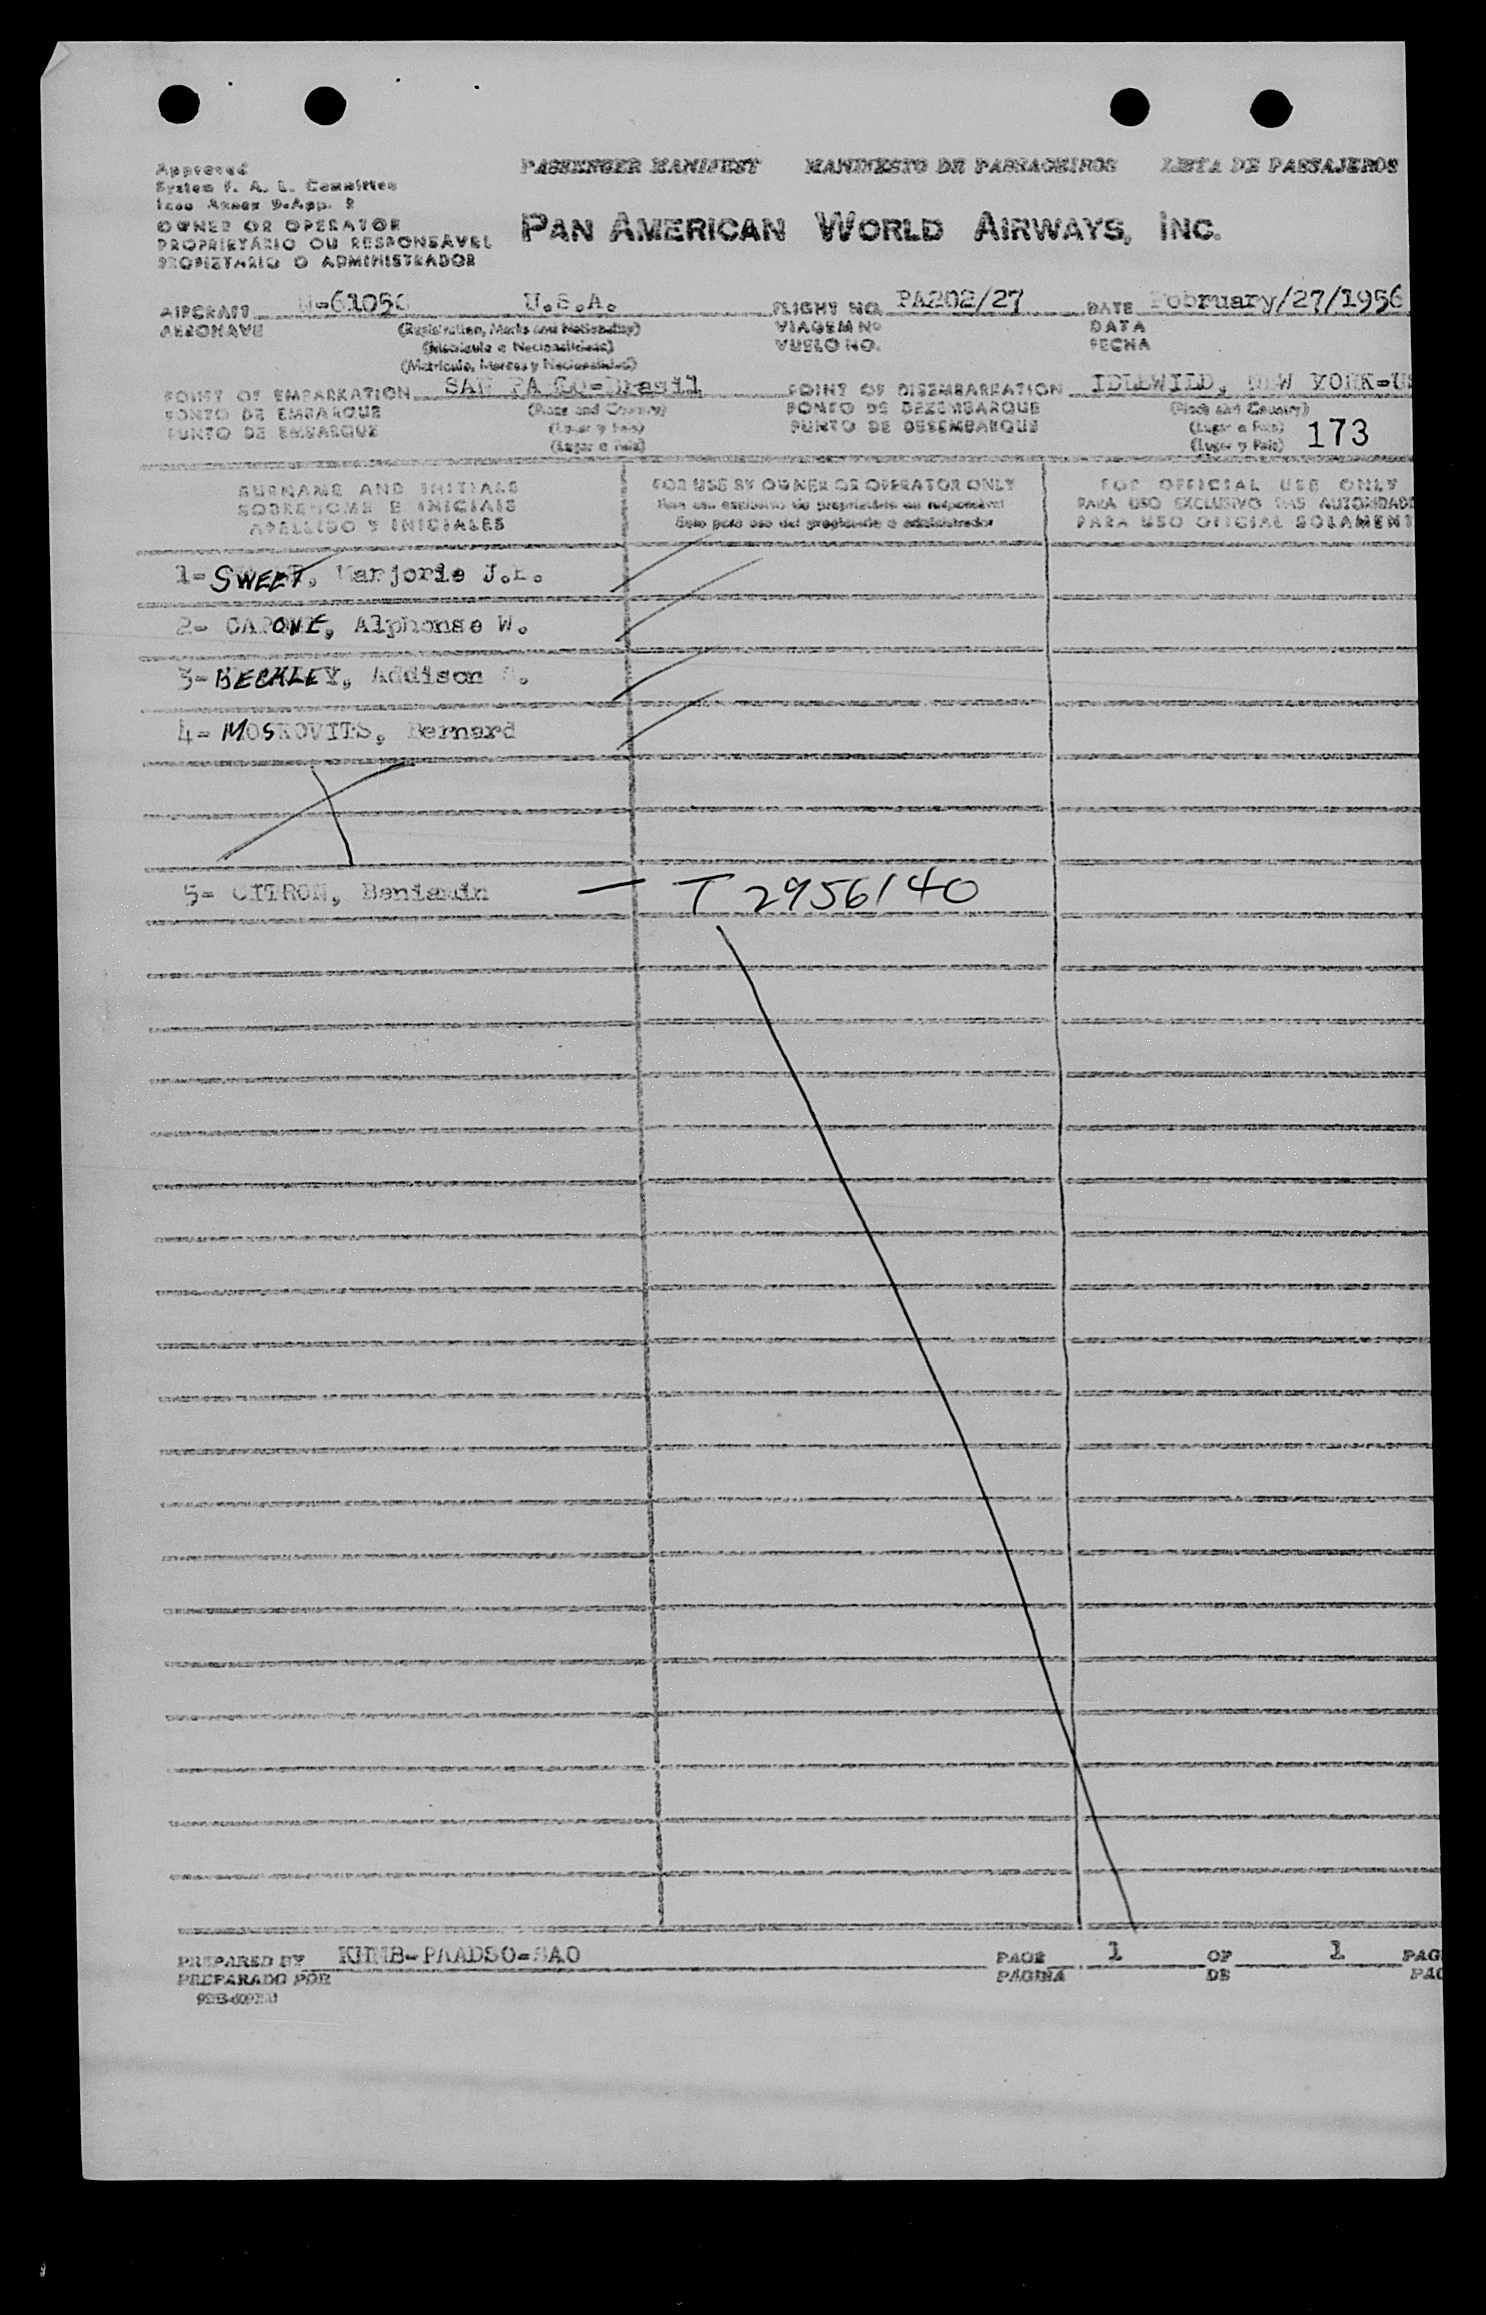 Approved
System F. A. L. Committee
Icao Annex 9-App. 2
OWNER OR OPERATOR
PROPRIETÁRIO OU RESPONSÁVEL
PROPIETARIO O ADMINISTRADOR
PASSENGER MANIFEST MANIFESTO DE PASSAGEIROS LISTA DE PASSAJEROS
PAN AMERICAN WORLD AIRWAYS, INC.
AIRCRAFT U.S.A. FLIGHT NO. PA202/27 DATE February/27/1956
AERONAVE (Registration, Marks and Nationality) VIAGEM Nº DATA
(Matricula e Nacionalidade) VUELO NO. FECHA
(Matricula, Marcas y Nacionalidad)
POINT OF EMBARKATION SAN PA LO-Brasil POINT OF DISEMBARKATION IDLEWILD, NEW YORK-U
PONTO DE EMBARQUE (Place and Country) PONTO DE DEZEMBARQUE (Place and Country)
PUNTO DE EMBARQUE PUNTO DE DESEMBARQUE (Lugar e Pais)
(Lugar e Pais) (Lugar y Pais) 173
SURNAME AND INITIALS FOR USE BY OWNER OR OPERATOR ONLY FOR OFFICIAL USE ONLY
SOBRENOME E INICIAIS Para uso exclusivo do proprietário ou responsável PARA USO EXCLUSIVO DAS AUTORIDADE
APELLIDO Y INICIALES Solo para uso del propietario o administrador PARA USO OFICIAL SOLAMENT
1- SWEET, Marjorie J.
2- CAPONE, Alphonse W.
3- BECKLEY, Addison
4- MOSKOVITS, Bernard
5- CITRON, Benjamin — T 2956140
PREPARED BY KHMB-PAADSO-SAO PAGE 1 OF 1 PAG
PREPARADO POR PÁGINA DE PÁG